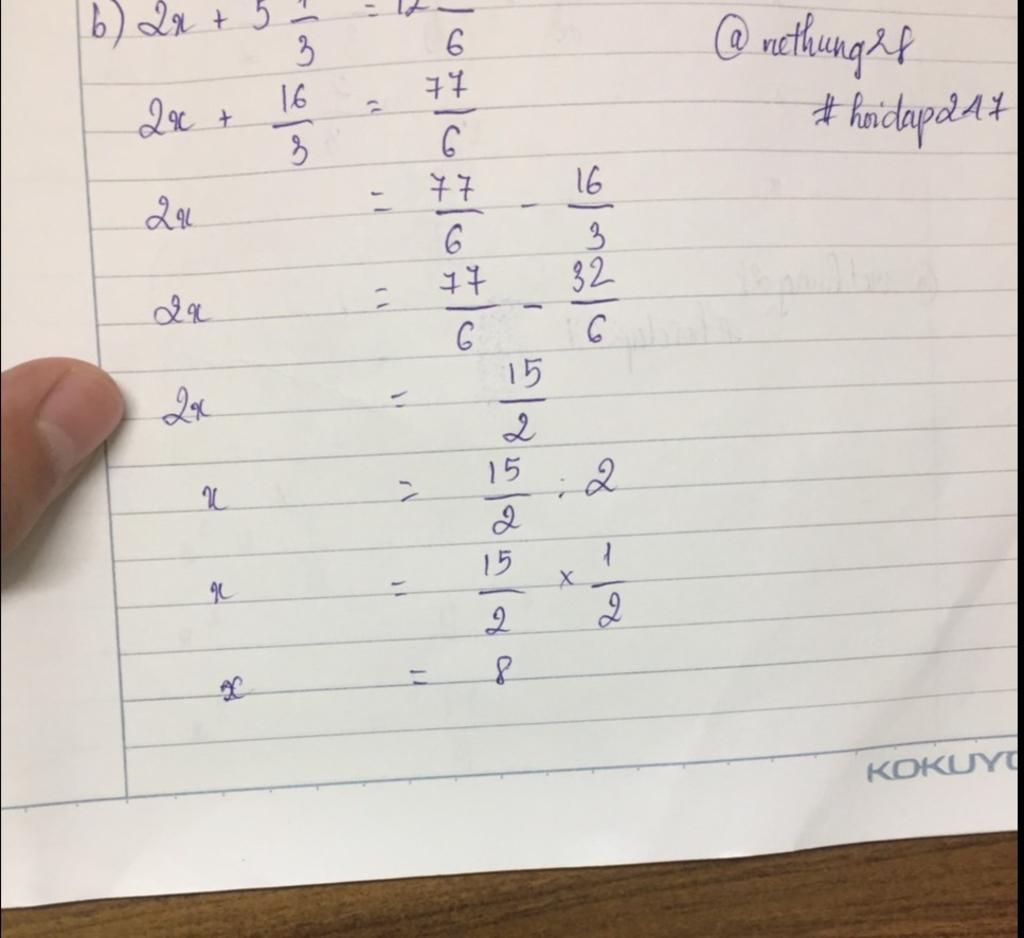 b) 2x + 5 1/3 = 12 /6
@nethung28
2x + 16/3 = 77/6
#hoidap247
2x = 77/6 - 16/3
2x = 77/6 - 32/6
2x = 15/2
x = 15/2 : 2
x = 15/2 × 1/2
x = 8
KOKUYO